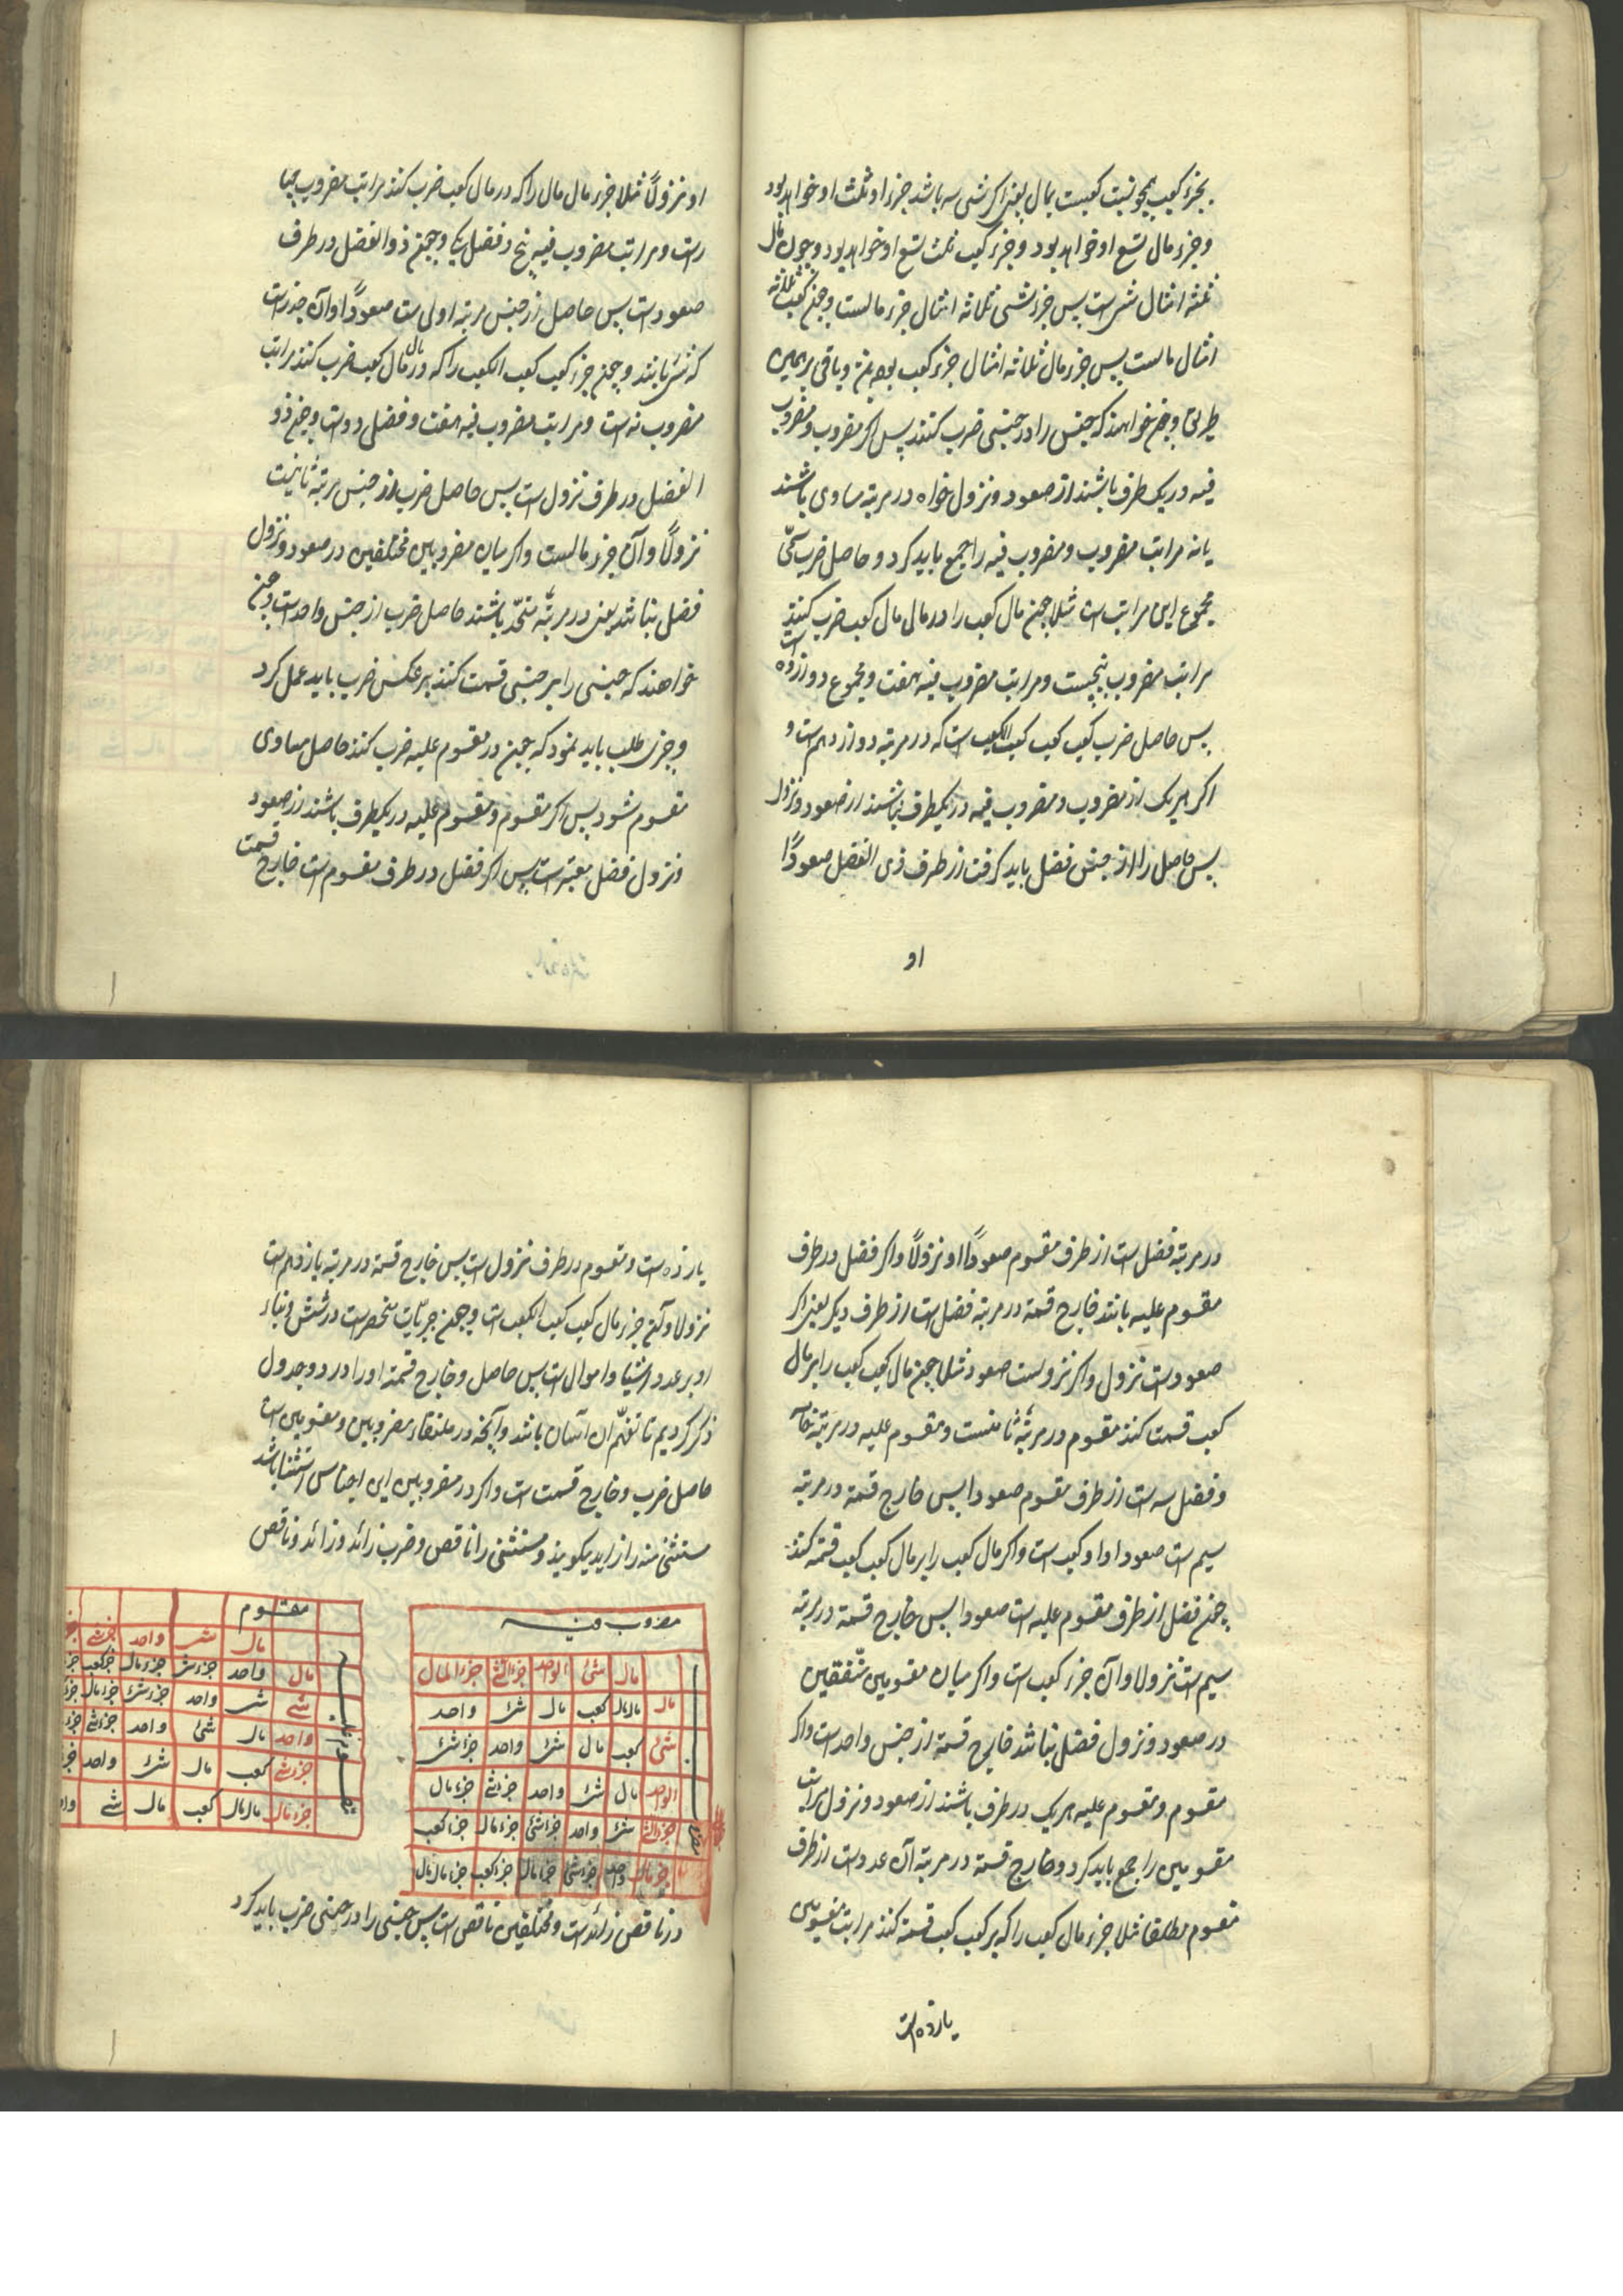 بجزء کعب همچو نسبت کعبست بمال یعنی اکر شی سه باشد جزء او ثلث او خواهد بود
و جزء مال تسع او خواهد بود و جزء کعب ثلث تسع او خواهد بود و چون مال
ثلثه امثال شی است پس جزء شی ثلاثه امثال جزء مالست و چون کعب ثلثه
امثال مالست پس جزء مال ثلاثه امثال جزء کعب بود و باقی برهمین
طریق و چون خواهند که جنس را در جنسی ضرب کنند پس اکر مضروب و مضروب
فیه در یک طرف باشند از صعود و نزول خواه در مرتبه مساوی باشند
یا نه مراتب مضروب و مضروب فیه را جمع باید کرد و حاصل ضرب سمّی
مجموع این مراتب است مثلا چون مال کعب را در مال مال کعب ضرب کنند
مراتب مضروب پنجست و مراتب مضروب فیه هفت و مجموع دوازده است
پس حاصل ضرب کعب کعب کعب الکعب است که در مرتبه دوازدهم است و
اکر هر یک از مضروب و مضروب فیه در یکطرف نباشند از صعود و نزول
پس حاصل را از جنس فضل باید کرفت از طرف ذی الفضل صعودًا
او
او نزولًا مثلا جزء مال مال را که در مال کعب ضرب کنند مراتب مضروب چها
راست و مراتب مضروب فیه پنج و فضل یکا و چون ذو الفضل در طرف
صعود است پس حاصل از جنس مرتبه اولی است صعودًا و آن جذر است
که شی نامند و چون جزء کعب کعب الکعب را که در مال مال کعب ضرب کنند مراتب
مضروب نه است و مراتب مضروب فیه هفت و فضل دو است و چون ذو
الفضل در طرف نزول است پس حاصل ضرب از جنس مرتبه ثانیست
نزولًا و آن جزء مالست و اکر میان مضروبین مختلفین در صعود و نزول
فضل نباشد یعنی در مرتبه متحّد باشند حاصل ضرب از جنس واحد است و چون
خواهند که جنسی را بر جنسی قسمت کنند بر عکس ضرب باید عمل کرد
و چیزی طلب باید نمود که چون در مقسوم علیه ضرب کنند حاصل مساوی
مقسوم شود پس اکر مقسوم و مقسوم علیه در یکطرف باشند از صعود
و نزول فضل معتبر است پس اکر فضل در طرف مقسوم است خارج قسمت
در مرتبه فضل است از طرف مقسوم صعودًا او نزولًا و اکر فضل در طرف
مقسوم علیه باشد خارج قسمة در مرتبه فضل است از طرف دیکر یعنی اکر
صعود است نزول و اکر نزولست صعود مثلا چون مال کعب کعب را بر مال
کعب قسمت کنند مقسوم در مرتبه ثامنست و مقسوم علیه در مرتبه خامسه
و فضل سه است از طرف مقسوم صعودا پس خارج قسمة در مرتبه
سیم است صعودا و او کعب است و اکر مال کعب را بر مال کعب کعب قسمة کنند
چون فضل از طرف مقسوم علیه است صعودا پس خارج قسمة در مرتبه
سیم است نزولا و آن جزء کعب است و اکر میان مقسومین متّفقین
در صعود و نزول فضل نباشد خارج قسمة از جنس واحد است و اکر
مقسوم و مقسوم علیه هر یک در طرف باشند از صعود و نزول مراتب
مقسومین را جمع باید کرد و خارج قسمة در مرتبه آن عدد است از طرف
مقسوم مطلقا مثلا جزء مال کعب را که بر کعب کعب قسمة کنند مراتب مقسومین
یازده است
یازده است و مقسوم در طرف نزول است پس خارج قسمة در مرتبه یازدهم است
نزولا و آن جزء مال کعب کعب الکعب است و چون جبریّات منحصر است در شش و بناء
او بر عدد و اشیا و اموال است پس حاصل و خارج قسمة او را در دو جدول
ذکر کردیم تا تفهّم ان آسان باشد و آنچه در ملتقاء مضروبین و مقسومین است
حاصل ضرب و خارج قسمت است و اکر در مضروبین این اجناس استثنا باشد
مستثنی منه را زاید بکویند و مستثنی را ناقص و ضرب زائد در زائد و ناقص
مضروب فیه
مال شئ الواحد جزء الشئ جزء المال
مال مال مال کعب مال شئ واحد
شئ کعب مال شئ واحد جزء شئ
الواحد مال شئ واحد جزء شئ جزء مال
جزء الشئ شئ واحد جزء شئ جزء مال جزء کعب
جزء مال واحد جزء شئ جزء مال جزء کعب جزء مال مال
مقسوم
مال شئ واحد جزء شئ
مال واحد جزء شئ جزء مال جزء کعب
شئ شئ واحد جزء شئ جزء مال
واحد مال شئ واحد جزء شئ
جزء شئ کعب مال شئ واحد
جزء مال مال مال کعب مال شئ
در ناقص زائد است و مختلفین ناقص است پس جنسی را در جنسی ضرب باید کرد